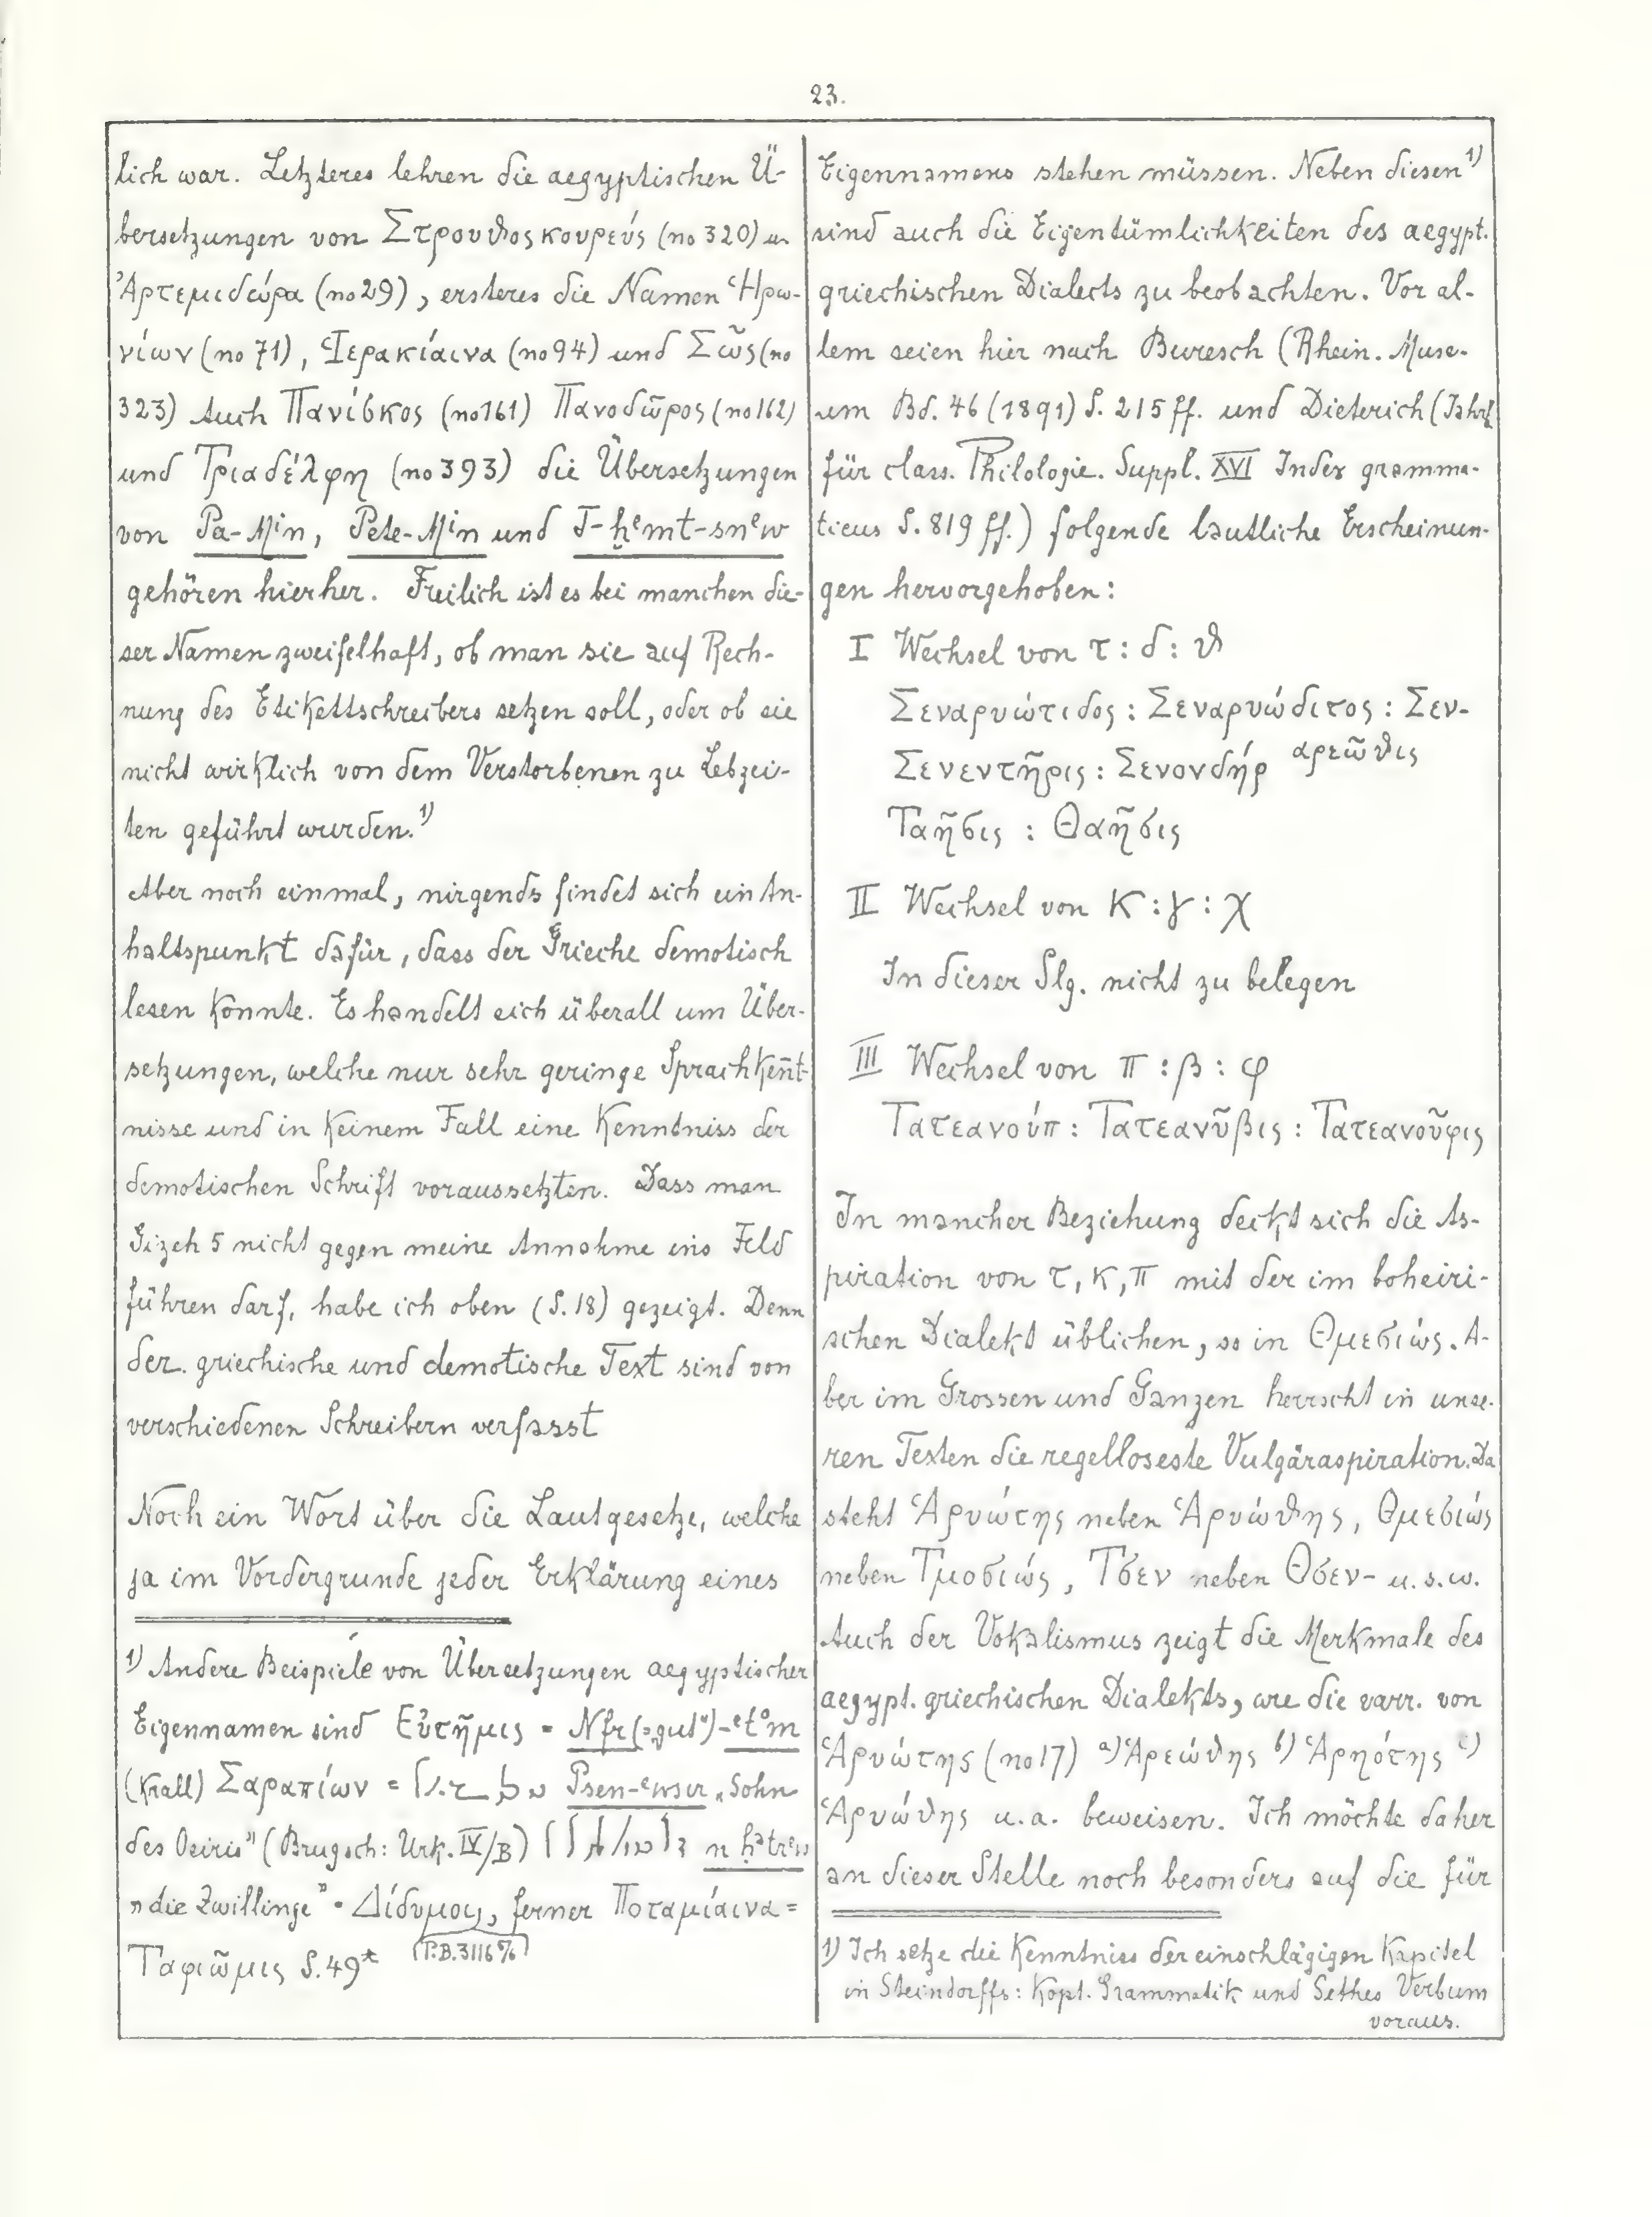 23.
lich war. Letzteres lehren die aegyptischen Ü-
bersetzungen von Στρουθος κουρεύς (no 320) u.
Ἀρτεμιδώρα (no 29), ersteres die Namen Ἡρω-
νίων (no 71), Ἱερακίαινα (no 94) und Σῶς (no
323) Auch Πανίσκος (no 161) Πανοδῶρος (no 162)
und Τριαδέλφη (no 393) die Übersetzungen
von Pa-Min, Pete-Min und T-ḫemt-snew
gehören hierher. Freilich ist es bei manchen die-
ser Namen zweifelhaft, ob man sie auf Rech-
nung des Etikettschreibers setzen soll, oder ob sie
nicht wirklich von dem Verstorbenen zu Lebzei-
ten geführt wurden.¹⁾
Aber noch einmal, nirgends findet sich ein An-
haltspunkt dafür, dass der Grieche demotisch
lesen konnte. Es handelt sich überall um Über-
setzungen, welche nur sehr geringe Sprachken̄t-
nisse und in keinem Fall eine Kenntniss der
demotischen Schrift voraussetzten. Dass man
Gizeh 5 nicht gegen meine Annahme ins Feld
führen darf, habe ich oben (S. 18) gezeigt. Denn
der griechische und demotische Text sind von
verschiedenen Schreibern verfasst
Noch ein Wort über die Lautgesetze, welche
ja im Vordergrunde jeder Erklärung eines
¹⁾ Andere Beispiele von Übersetzungen aegyptischer
Eigennamen sind Εὐτῆμις = Nfr (=„gut“)-etom
(Krall) Σαραπίων = Psen-ewsir „Sohn
des Osiris“ (Brugsch: Urk. IV/B) n ḥatrew
„die Zwillinge“ = Δίδυμοι, ferner Ποταμίαινα =
(P.B. 3116 %)
Ταφιῶμις S. 49*
Eigennamens stehen müssen. Neben diesen¹⁾
sind auch die Eigentümlichkeiten des aegypt.
griechischen Dialects zu beobachten. Vor al-
lem seien hier nach Buresch (Rhein. Muse-
um Bd. 46 (1891) S. 215 ff. und Dieterich (Jahrb
für class. Philologie. Suppl. XVI Index gramma-
ticus S. 819 ff.) folgende lautliche Erscheinun-
gen hervorgehoben:
I Wechsel von τ : δ : θ
Σεναρυώτιδος : Σεναρυώδιτος : Σεν-
αρεῶθις
Σενεντῆρις : Σενονδήρ
Ταῆσις : Θαῆσις
II Wechsel von κ : γ : χ
In dieser Slg. nicht zu belegen
III Wechsel von π : β : φ
Τατεανούπ : Τατεανῦβις : Τατεανοῦφις
In mancher Beziehung deckt sich die As-
piration von τ, κ, π mit der im boheiri-
schen Dialekt üblichen, so in Θμεσιώς. A-
ber im Grossen und Ganzen herrscht in unse-
ren Texten die regelloseste Vulgäraspiration. Da
steht Ἁρυώτης neben Ἁρυώθης, Θμεσιώς
neben Τμοσιώς, Τσεν neben Θσεν- u.s.w.
Auch der Vokalismus zeigt die Merkmale des
aegypt. griechischen Dialekts, wie die varr. von
Ἁρυώτης (no 17) a) Ἁρεώθης b) Ἁρηότης c)
Ἁρυώθης u.a. beweisen. Ich möchte daher
an dieser Stelle noch besonders auf die für
1) Ich setze die Kenntniss der einschlägigen Kapitel
in Steindorffs: Kopt. Grammatik und Sethes Verbum
voraus.